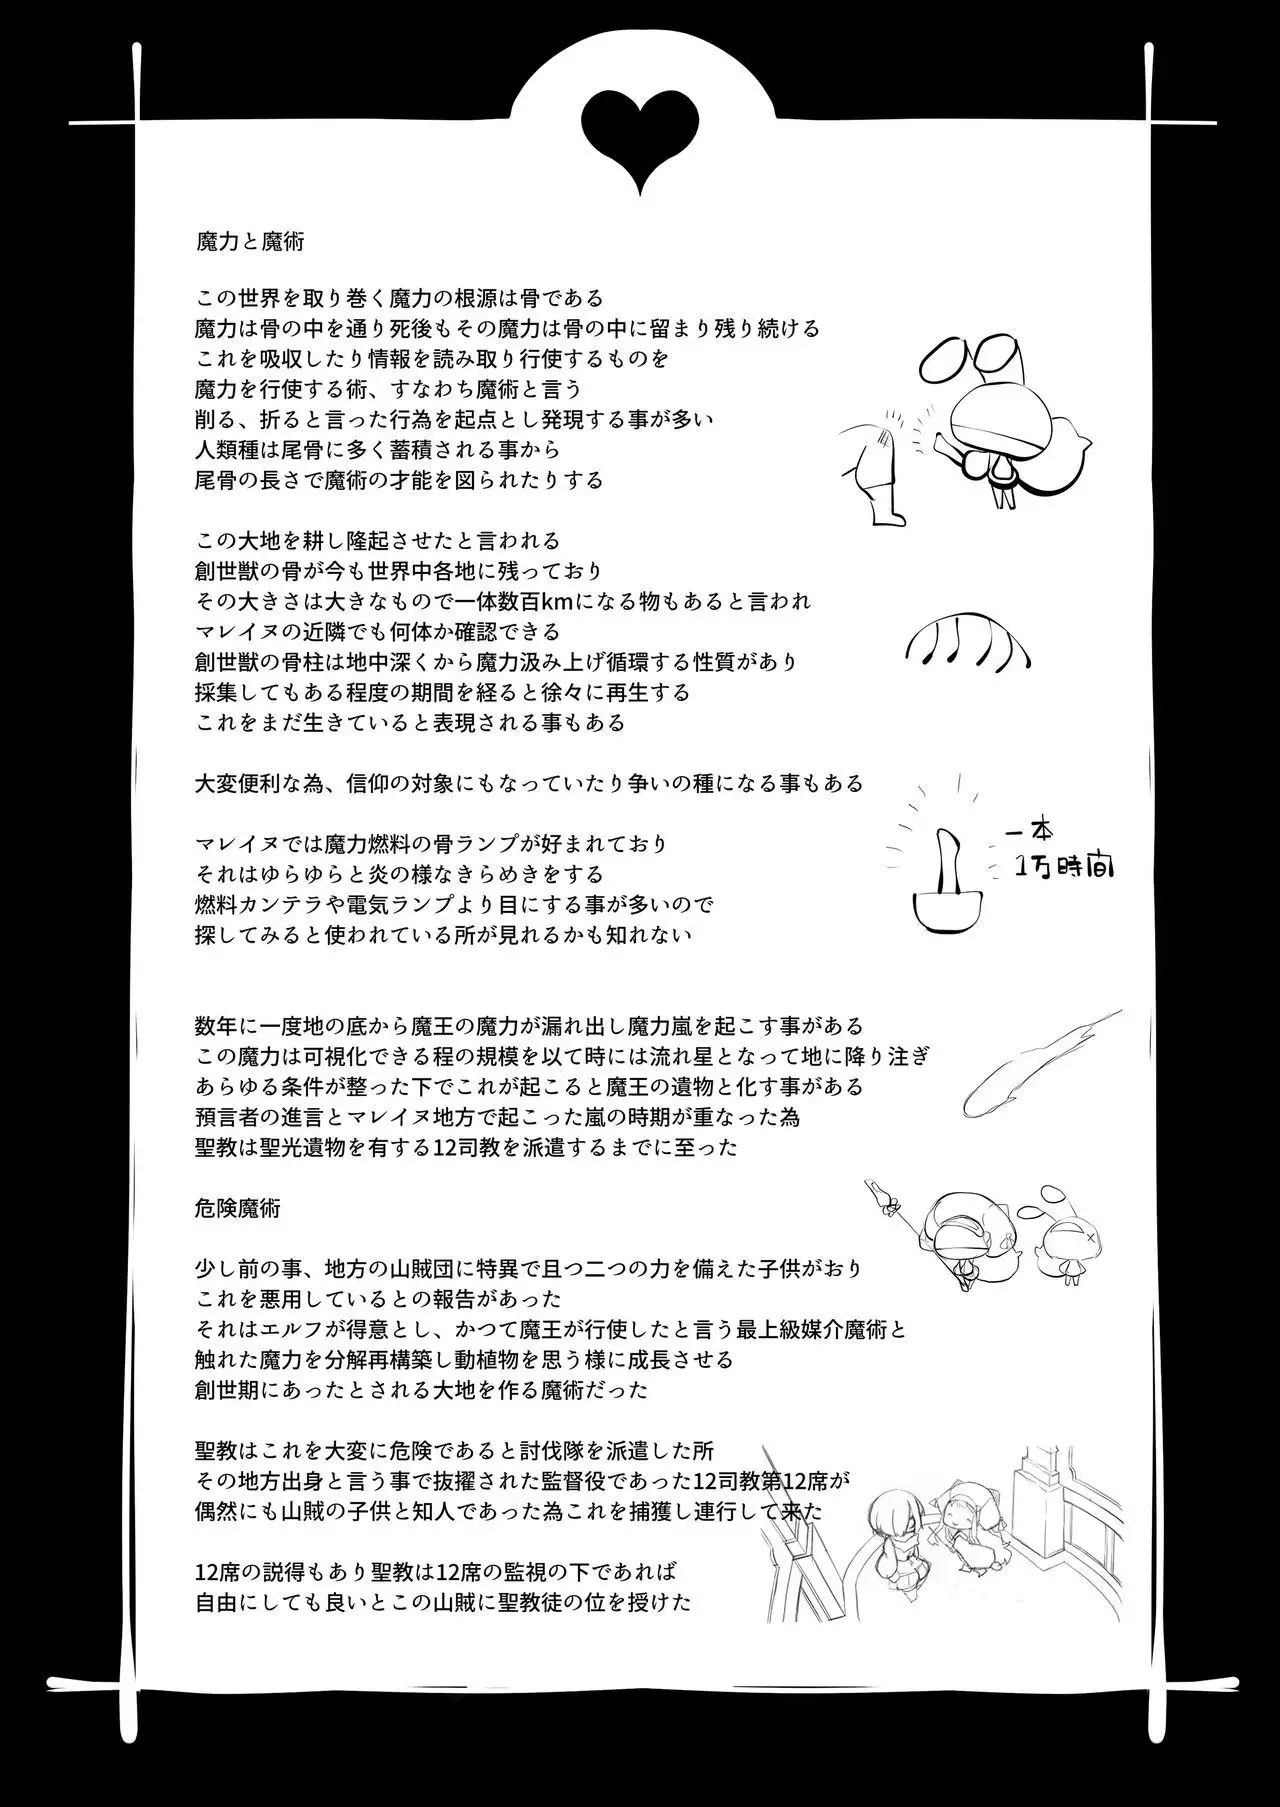 魔力と魔術
この世界を取り巻く魔力の根源は骨である
魔力は骨の中を通り死後もその魔力は骨の中に留まり残り続ける
これを吸収したり情報を読み取り行使するものを
魔力を行使する術、すなわち魔術と言う
削る、折ると言った行為を起点とし発現する事が多い
人類種は尾骨に多く蓄積される事から
尾骨の長さで魔術の才能を図られたりする
この大地を耕し隆起させたと言われる
創世獣の骨が今も世界中各地に残っており
その大きさは大きなもので一体数百kmになる物もあると言われ
マレイヌの近隣でも何体か確認できる
創世獣の骨柱は地中深くから魔力汲み上げ循環する性質があり
採集してもある程度の期間を経ると徐々に再生する
これをまだ生きていると表現される事もある
大変便利な為、信仰の対象にもなっていたり争いの種になる事もある
マレイヌでは魔力燃料の骨ランプが好まれており
それはゆらゆらと炎の様なきらめきをする
燃料カンテラや電気ランプより目にする事が多いので
探してみると使われている所が見れるかも知れない
一本
1万時間
数年に一度地の底から魔王の魔力が漏れ出し魔力嵐を起こす事がある
この魔力は可視化できる程の規模を以て時には流れ星となって地に降り注ぎ
あらゆる条件が整った下でこれが起こると魔王の遺物と化す事がある
預言者の進言とマレイヌ地方で起こった嵐の時期が重なった為
聖教は聖光遺物を有する12司教を派遣するまでに至った
危険魔術
少し前の事、地方の山賊団に特異で且つ二つの力を備えた子供がおり
これを悪用しているとの報告があった
それはエルフが得意とし、かつて魔王が行使したと言う最上級媒介魔術と
触れた魔力を分解再構築し動植物を思う様に成長させる
創世期にあったとされる大地を作る魔術だった
聖教はこれを大変に危険であると討伐隊を派遣した所
その地方出身と言う事で抜擢された監督役であった12司教第12席が
偶然にも山賊の子供と知人であった為これを捕獲し連行して来た
12席の説得もあり聖教は12席の監視の下であれば
自由にしても良いとこの山賊に聖教徒の位を授けた